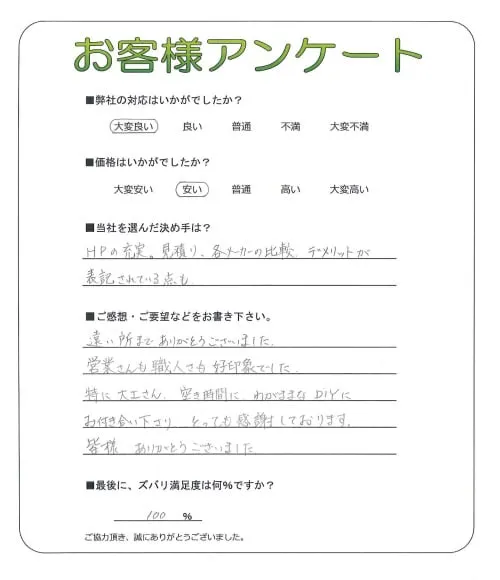 お客様アンケート
■弊社の対応はいかがでしたか？
大変良い 良い 普通 不満 大変不満
■価格はいかがでしたか？
大変安い 安い 普通 高い 大変高い
■当社を選んだ決め手は？
HPの充実。見積り、各メーカーの比較、デメリットが
表記されている点も
■ご感想・ご要望などをお書き下さい。
遠い所までありがとうございました。
営業さんも職人さも好印象でした。
特に大工さん、空き時間に、わがままなDIYに
お付き合い下さり、とっても感謝しております。
皆様 ありがとうございました
■最後に、ズバリ満足度は何％ですか？
100 ％
ご協力頂き、誠にありがとうございました。